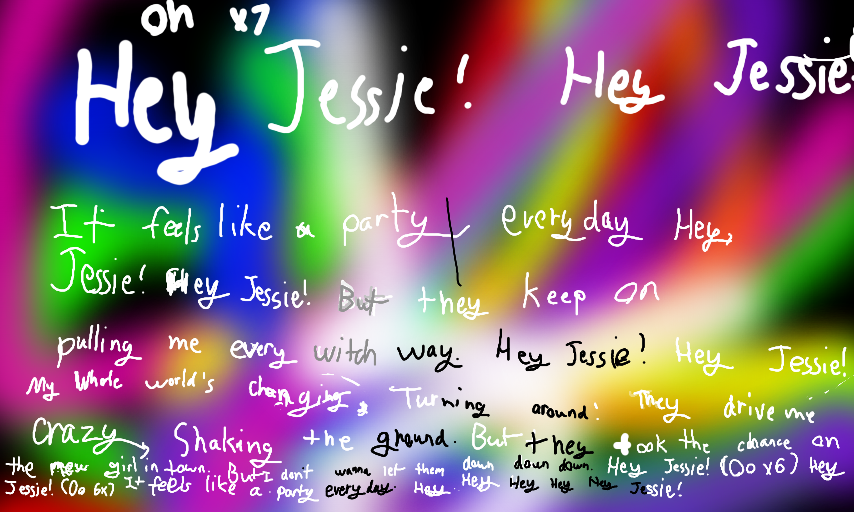 oh x7
Hey Jessie! Hey Jessie!
It feels like a party every day Hey,
Jessie! Hey Jessie! But they keep on
pulling me every witch way. Hey Jessie! Hey Jessie!
My Whole world's changing, Turning around! They drive me
crazy, Shaking the ground. But they took the chance on
the new girl in town. But I don't wanna let them down down down. Hey Jessie! (Oo x6) Hey
Jessie! (Oo 6x) It feels like a party every day. Hey Hey Hey Hey Hey Jessie!